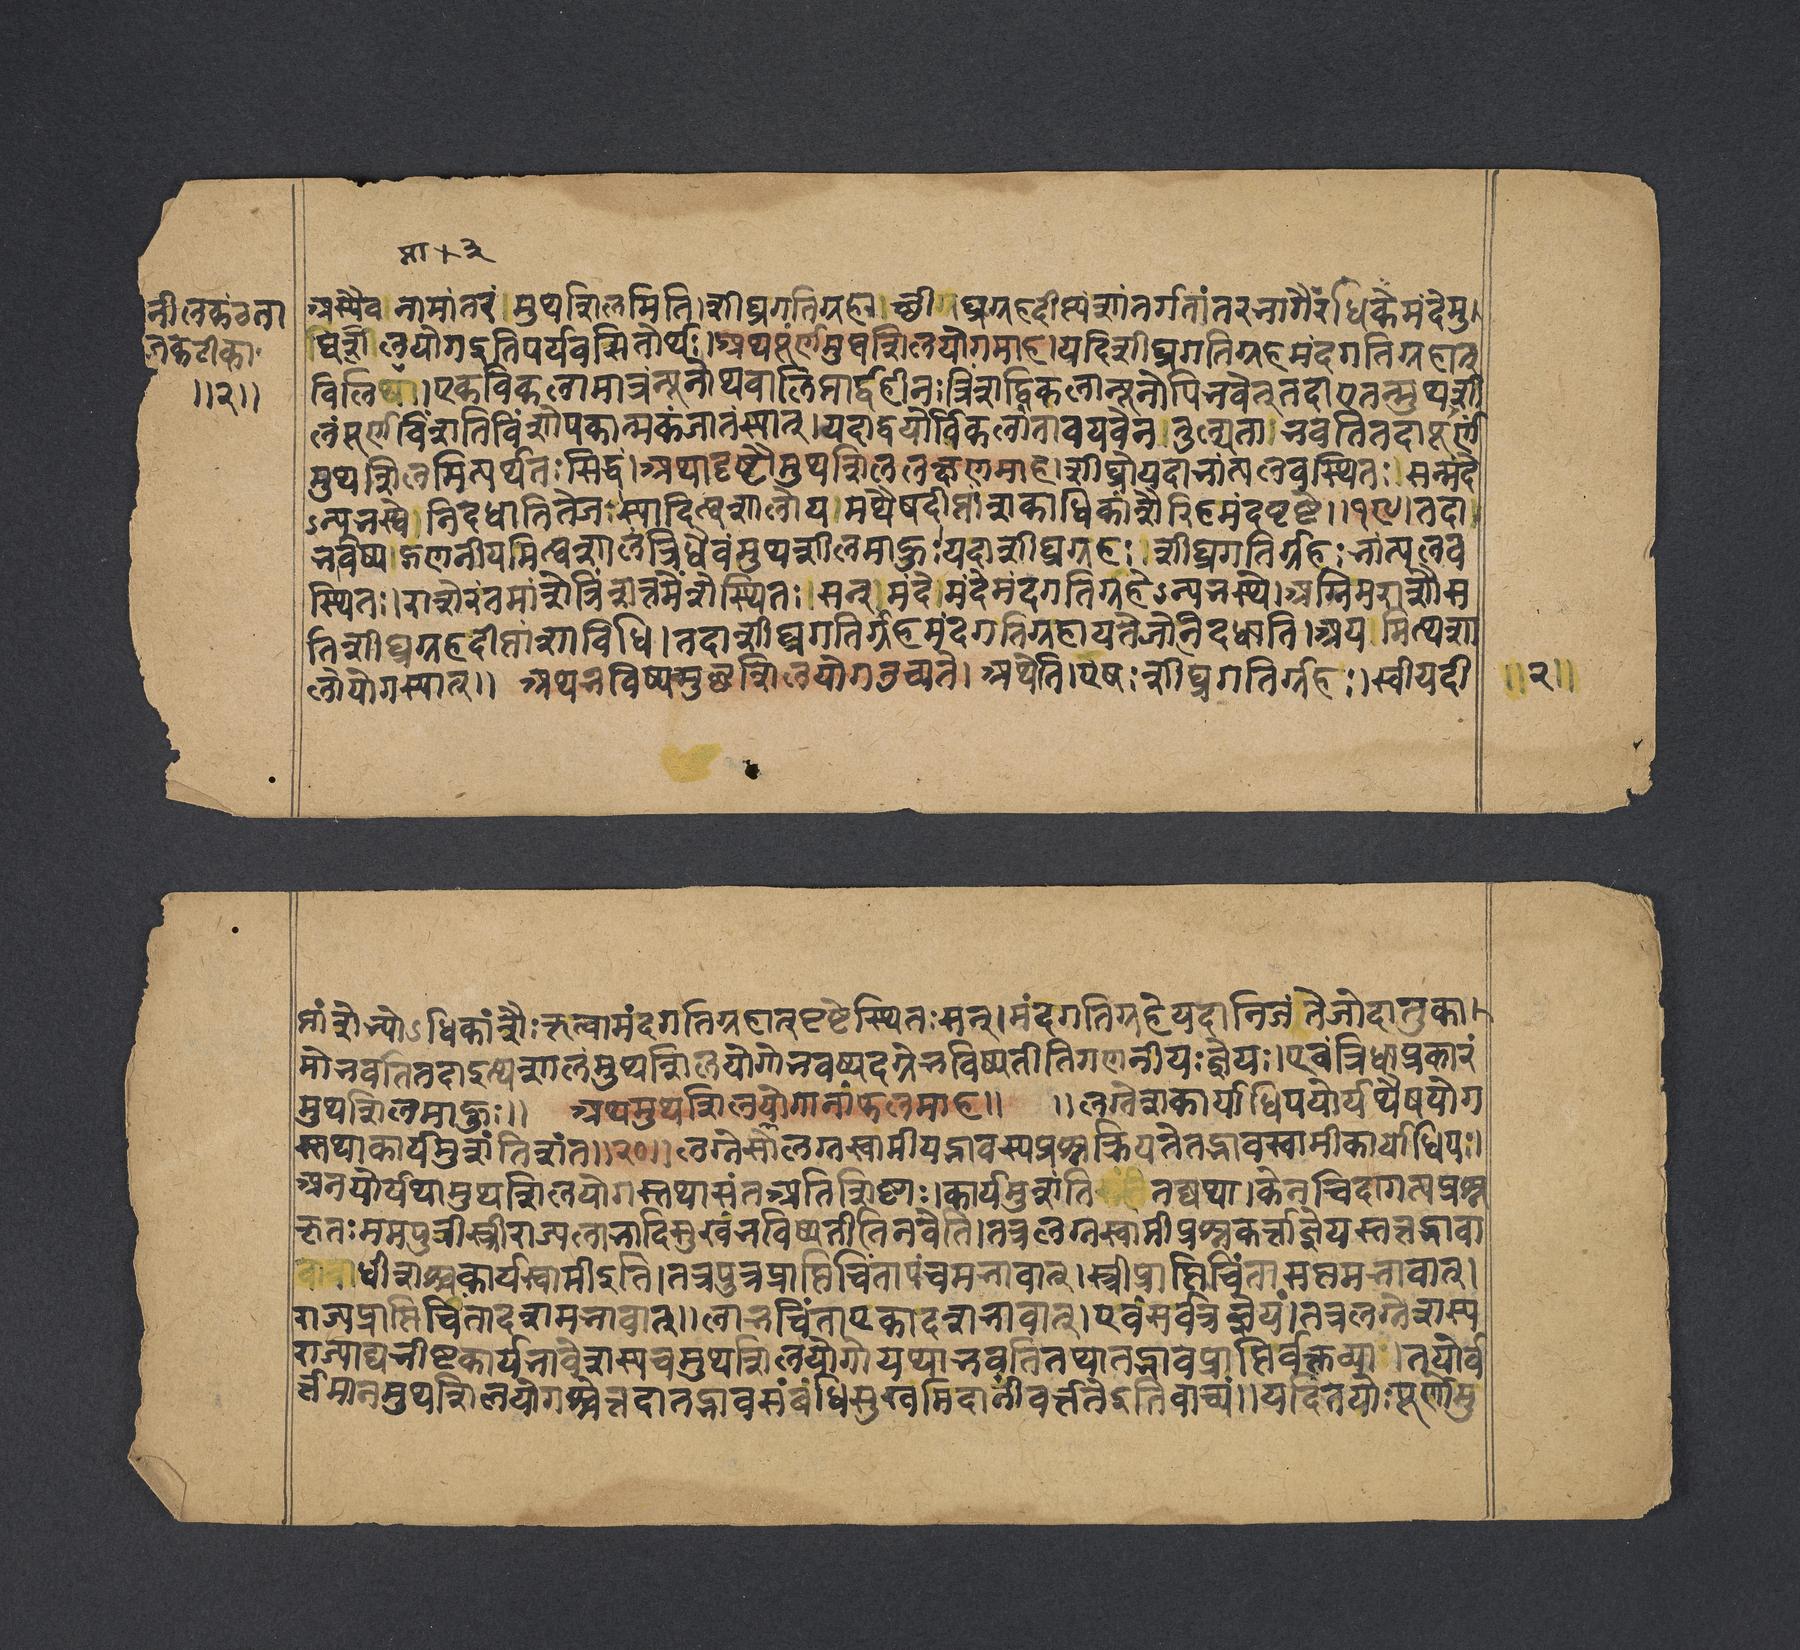 मा + ३
नीलकंठता
जकटीका
।।२।।
अस्यैव नामांतरं मुथशिलमिति। शीघ्रगतिग्रहः। शीघ्रग्रहदीप्त्यंशांतर्गतांतरभागैरधिकैमंदेमु।
थिशीलयोगइतिपर्यवसितोर्थः।।अथपूर्णमुथशिलयोगमाह।यदिशीघ्रगतिग्रहमंदगतिग्रहात्
विलिप्ता।एकविकलामात्रंन्यूनोथवालिप्तार्द्धहीनः त्रिंशद्विकलान्यूनोपिभवेत्तदाएतन्मुथशी
लंपूर्णविंशतिविंशोपकात्मकंजातंस्यात्।यदाद्वयोर्विकलांतावयवेन तुल्यता भवतितदापूर्ण
मुथशिलमित्यर्थतःसिद्धं।अथादृष्टौमुथशिललक्षणमाह।शीघ्रोयदाभांत्यलवस्थितः सन्मंदे
ऽन्यभस्थे निदधातितेजःस्यादित्थशालोय मथैषदीप्तांशकाधिकांशैरिहमंदपृष्टे।।१९।तदा
भविष्य गणनीयमित्थशालंत्रिधैवंमुथशीलमाहुः।यदाशीघ्रग्रहः शीघ्रगतिर्ग्रहः भांत्यलव
स्थितः।राशेरंतमांशेत्रिंशत्तमेंशेस्थितः सन् मंदे मंदेमंदगतिग्रहेऽन्यभस्थे।अग्निमराशौस
तिशीघ्रग्रहदीप्तांशाविधि।तदाशीघ्रगतिर्ग्रहमंदगतिग्रहाय तेजोनिदधाति।अय मित्थशा
लोयोगस्यात्।। अथभविष्यन्मुथशिलयोगउच्यते। अथेति।एषःशीघ्रगतिर्ग्रहः।स्वीयदी
।।२।।
प्तांशेभ्योऽधिकांशैःकृत्वामंदगतिग्रहात्पृष्टेस्थितःसन्।मंदगतिग्रहेयदानिजं तेजोदातुका।
मोभवतितदाइत्थशालंमुथशिलयोगोभवष्यदग्रेभविष्यतीतिगणनीयःज्ञेयः।एवंत्रिधाप्रकारं
मुथशिलमाहुः।। अथमुथशिलयोगानांफलमाह।। ।।लग्नेशकार्याधिपयोर्यथैषयोग
स्तथाकार्यमुशंतिशंत।।२०।।लग्नेसोलग्नस्वामीयद्भावस्यप्रश्नक्रियतेतद्भावस्वामीकार्याधिपः।
अनयोर्यथामुथशिलयोगस्तथासंतअतिशिष्टाः।कार्यमुशंति तद्यथा।केनचिदागत्यप्रश्न
कृतःममपुत्रीस्त्रीराज्यलाभादिसुखंभविष्यतीतिनवेति।तत्रलग्नस्वामीप्रश्नकर्त्ताज्ञेयस्तत्तद्भावा
वावाधीशश्चकार्यस्वामीइति।तत्रपुत्रप्राप्तिचिंतापंचमभावात्।स्त्रीप्राप्तिचिंतासप्तमभावात्।
राज्यप्राप्तिचिंतादशमभावात्।।लाभचिंताएकादशभावात्।एवंसर्वत्रज्ञेयं।तत्रलग्नेशस्य
राज्याद्यभीष्टकार्यभावेशस्यचमुथशिलयोगोयथाभवतितथातद्भावप्राप्तिर्वक्तव्या ।तयोर्व
र्त्तमानमुथशिलयोगश्चेत्तदातद्भावसंबंधिसुखमिदानींवर्त्ततेइतिवाच्यं।।यदितयोःपूर्णमु